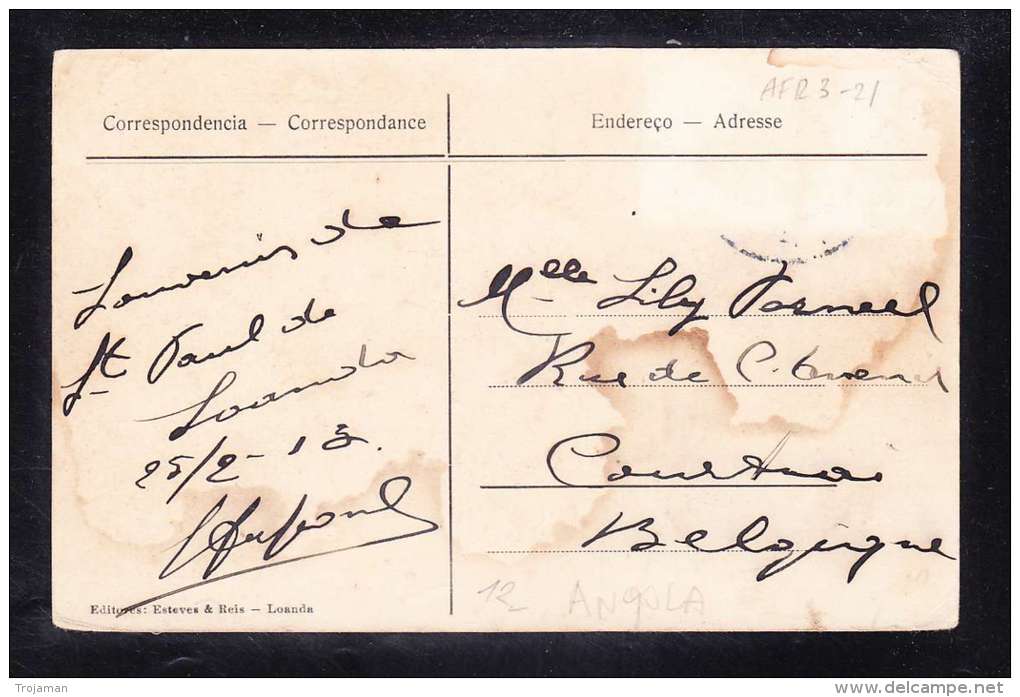 AFR 3-21
Correspondencia — Correspondance
Endereço — Adresse
Souvenir de
St Paul de
Loanda
25/2-13.
Mlle Lily Verneel
Rue de
Courtrai
Belgique
Editores: Esteves & Reis — Loanda
12 ANGOLA
Trojaman
www.delcampe.net